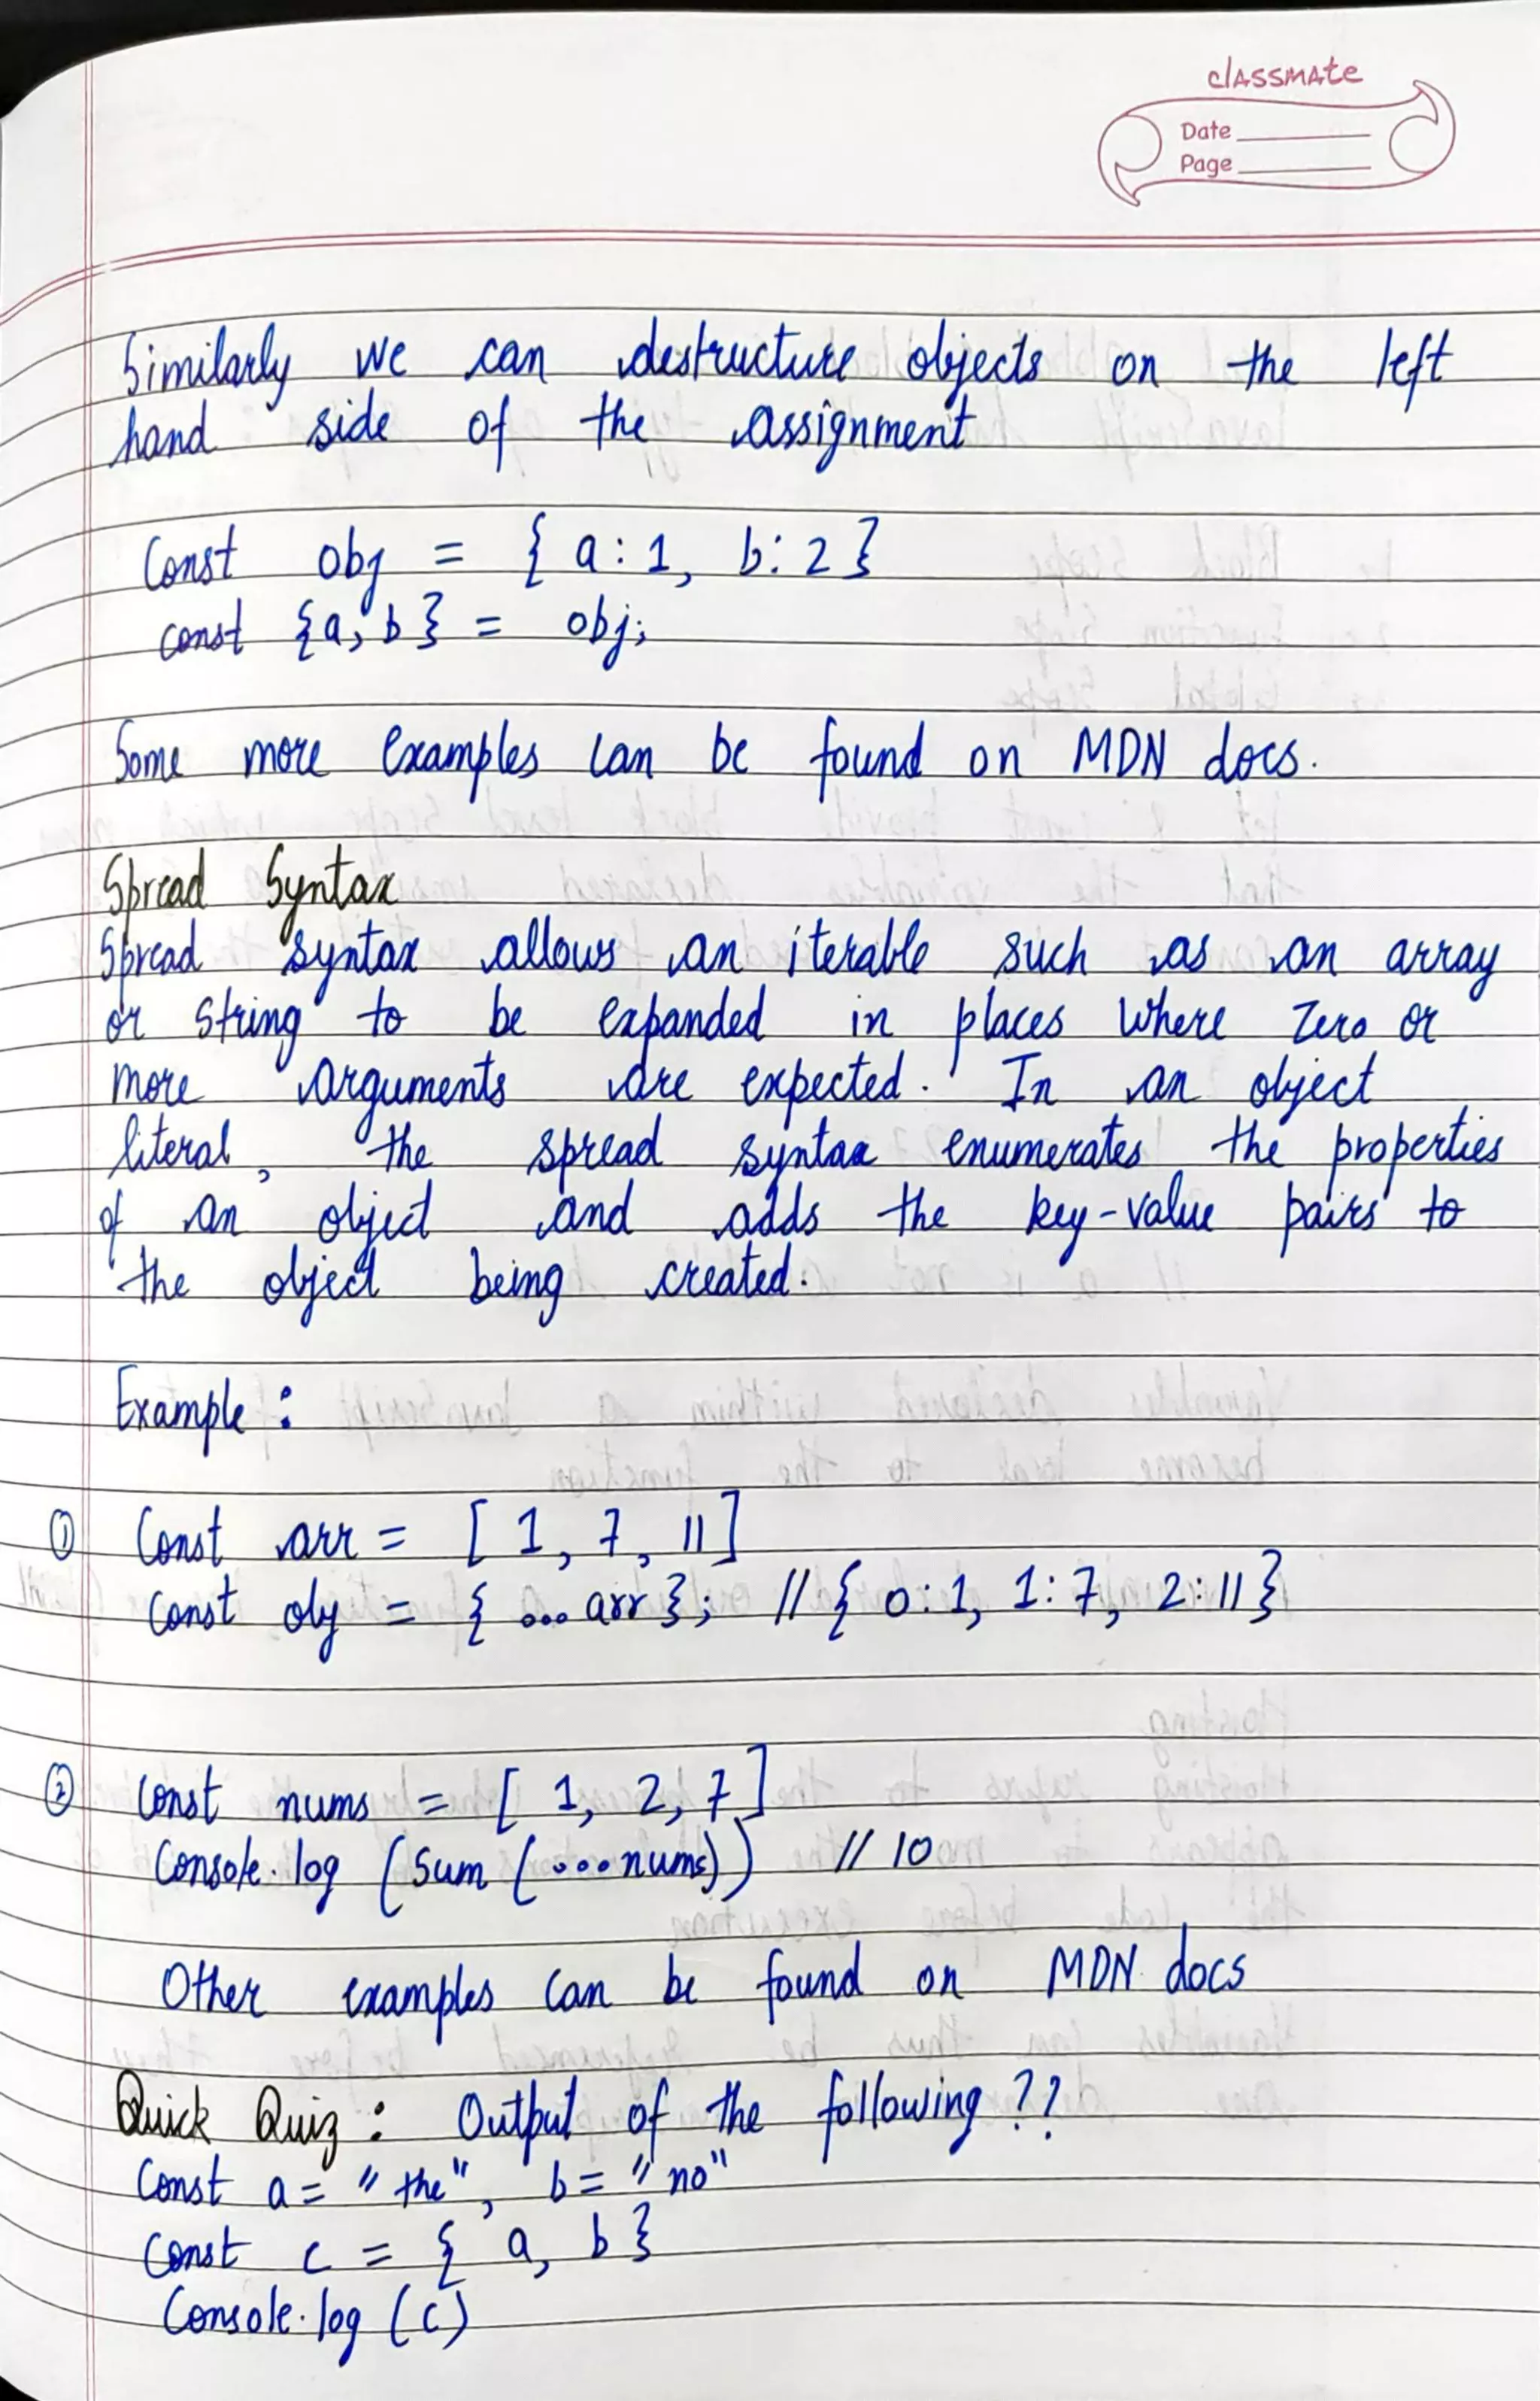 classmate
Date
Page
Similarly we can destructure objects on the left
hand side of the assignment
Const obj = { a : 1, b : 2 }
const {a, b} = obj;
Some more examples can be found on MDN docs.
Spread Syntax
Spread syntax allows an iterable such as an array
or string to be expanded in places where zero or
more arguments are expected. In an object
literal, the spread syntax enumerates the properties
of an object and adds the key-value pairs to
the object being created.
Example :
① Const arr = [ 1, 7, 11 ]
Const obj = { ... arr } ; // { 0 : 1, 1 : 7, 2 : 11 }
② Const nums = [ 1, 2, 7 ]
Console.log (Sum (...nums)) // 10
Other examples can be found on MDN docs
Quick Quiz : Output of the following ??
Const a = "the", b = "no"
Const c = { a, b }
Console.log (c)